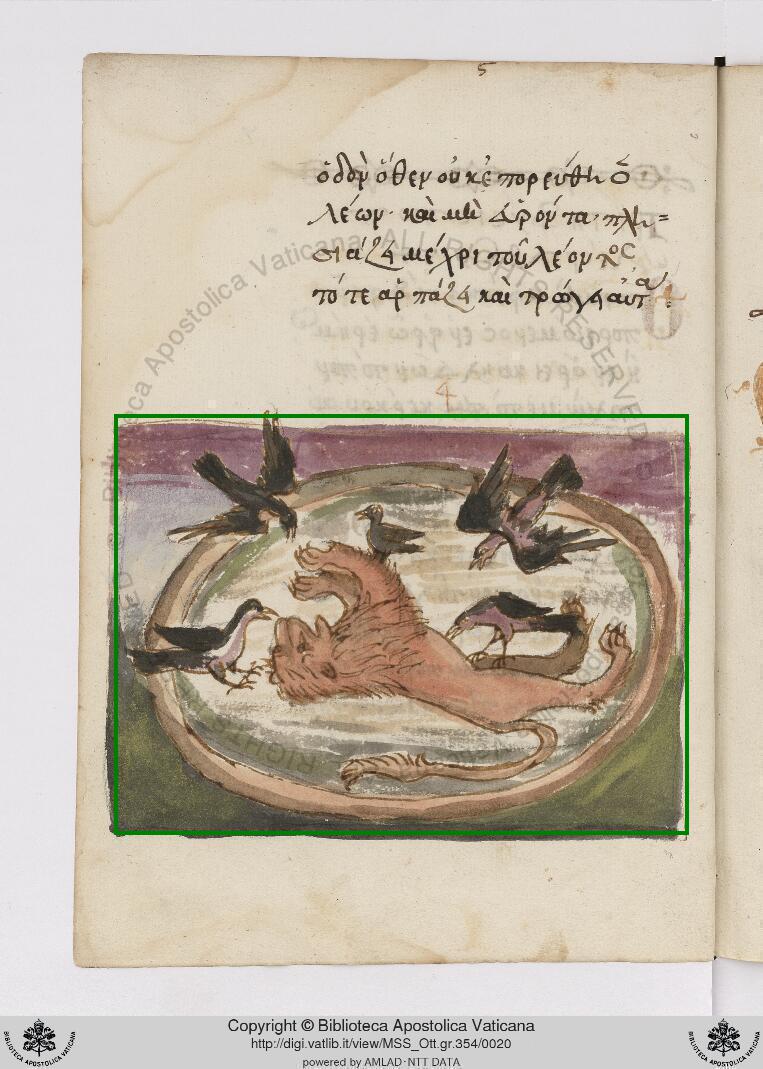 5
ὁδὸν ὅθεν οὐκ ἐπορεύθη ὁ
λέων· καὶ μὴ εὑρόντα· πλη=
σιάζη μέχρι τοῦ λέοντος
τότε ἁρπάζη καὶ τρώγη αὐτὰ
4
Biblioteca Apostolica Vaticana ALL RIGHTS RESERVED ©
Copyright © Biblioteca Apostolica Vaticana
http://digi.vatlib.it/view/MSS_Ott.gr.354/0020
powered by AMLAD·NTT DATA
BIBLIOTECA APOSTOLICA VATICANA
BIBLIOTECA APOSTOLICA VATICANA